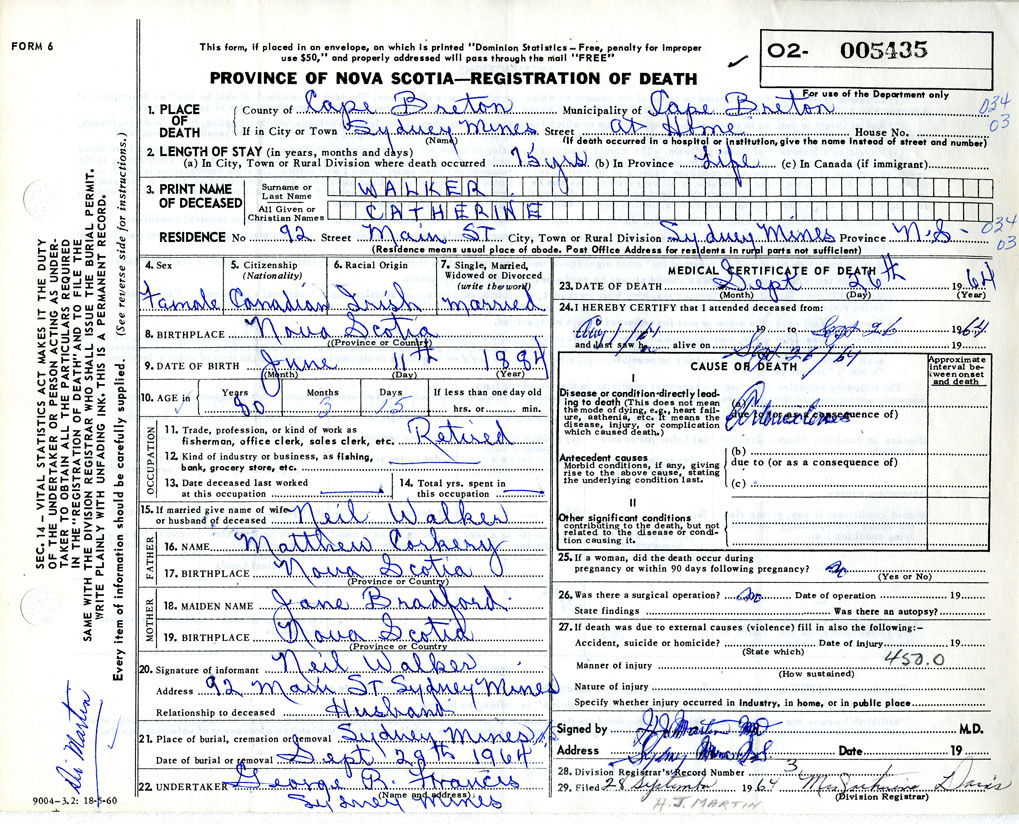 FORM 6
This form, if placed in an envelope, on which is printed "Dominion Statistics – Free, penalty for improper
use $50," and properly addressed will pass through the mail "FREE"
O2- 005435
For use of the Department only
PROVINCE OF NOVA SCOTIA—REGISTRATION OF DEATH
034
03
1. PLACE OF DEATH
County of Cape Breton Municipality of Cape Breton
If in City or Town Sydney Mines Street at Home House No.
(Name) (If death occurred in a hospital or institution, give the name instead of street and number)
2. LENGTH OF STAY (in years, months and days)
(a) In City, Town or Rural Division where death occurred 75 yrs (b) In Province Life (c) In Canada (if immigrant)
3. PRINT NAME OF DECEASED
Surname or Last Name WALKER
All Given or Christian Names CATHERINE
RESIDENCE No 92 Street Main ST City, Town or Rural Division Sydney Mines Province N.S-
034
03
(Residence means usual place of abode. Post Office Address for residents in rural parts not sufficient)
4. Sex Famale
5. Citizenship (Nationality) Canadian
6. Racial Origin Irish
7. Single, Married, Widowed or Divorced (write the word) married
8. BIRTHPLACE Nova Scotia
(Province or Country)
9. DATE OF BIRTH June 11th 1884
(Month) (Day) (Year)
10. AGE in Years 80 Months 3 Days 15 If less than one day old hrs. or min.
OCCUPATION
11. Trade, profession, or kind of work as fisherman, office clerk, sales clerk, etc. Retired
12. Kind of industry or business, as fishing, bank, grocery store, etc.
13. Date deceased last worked at this occupation
14. Total yrs. spent in this occupation
15. If married give name of wife or husband of deceased Neil Walker
FATHER
16. NAME Matthew Corkery
17. BIRTHPLACE Nova Scotia
(Province or Country)
MOTHER
18. MAIDEN NAME Jane Bradford
19. BIRTHPLACE Nova Scotia
(Province or Country
20. Signature of informant Neil Walker
Address 92 Main ST Sydney Mines
Relationship to deceased Husband
21. Place of burial, cremation or removal Sydney Mines
Date of burial or removal Sept 28th 1964
22. UNDERTAKER George R. Francis
(Name and address)
Sydney Mines
9004-3.2: 18-5-60
MEDICAL CERTIFICATE OF DEATH
23. DATE OF DEATH Sept 26th 1964
(Month) (Day) (Year)
24. I HEREBY CERTIFY that I attended deceased from:
Aug 1/64 19 to Sept 26 1964
and last saw h alive on Sept 26/64 19
CAUSE OF DEATH
Approximate interval between onset and death
I
Disease or condition directly leading to death (This does not mean the mode of dying, e.g., heart failure, asthenia, etc. It means the disease, injury, or complication which caused death.)
(a)
due to (or as a consequence of)
Antecedent causes
Morbid conditions, if any, giving rise to the above cause, stating the underlying condition last.
(b)
due to (or as a consequence of)
(c)
II
Other significant conditions contributing to the death, but not related to the disease or condition causing it.
25. If a woman, did the death occur during
pregnancy or within 90 days following pregnancy? no
(Yes or No)
26. Was there a surgical operation? no Date of operation 19
State findings Was there an autopsy?
27. If death was due to external causes (violence) fill in also the following:–
Accident, suicide or homicide? Date of injury 19
(State which)
450.0
Manner of injury
(How sustained)
Nature of injury
Specify whether injury occurred in industry, in home, or in public place
Signed by Martin MD M.D.
Address Sydney Mines N.S. Date 19
28. Division Registrar's Record Number 3
29. Filed 28 September 1964 Mrs Davis
(Division Registrar)
H.J. MARTIN
SEC. 14 – VITAL STATISTICS ACT MAKES IT THE DUTY
OF THE UNDERTAKER OR PERSON ACTING AS UNDER-
TAKER TO OBTAIN ALL THE PARTICULARS REQUIRED
IN THE "REGISTRATION OF DEATH" AND TO FILE THE
SAME WITH THE DIVISION REGISTRAR WHO SHALL ISSUE THE BURIAL PERMIT.
WRITE PLAINLY WITH UNFADING INK. THIS IS A PERMANENT RECORD.
Every item of information should be carefully supplied. (See reverse side for instructions.)
Dr Martin